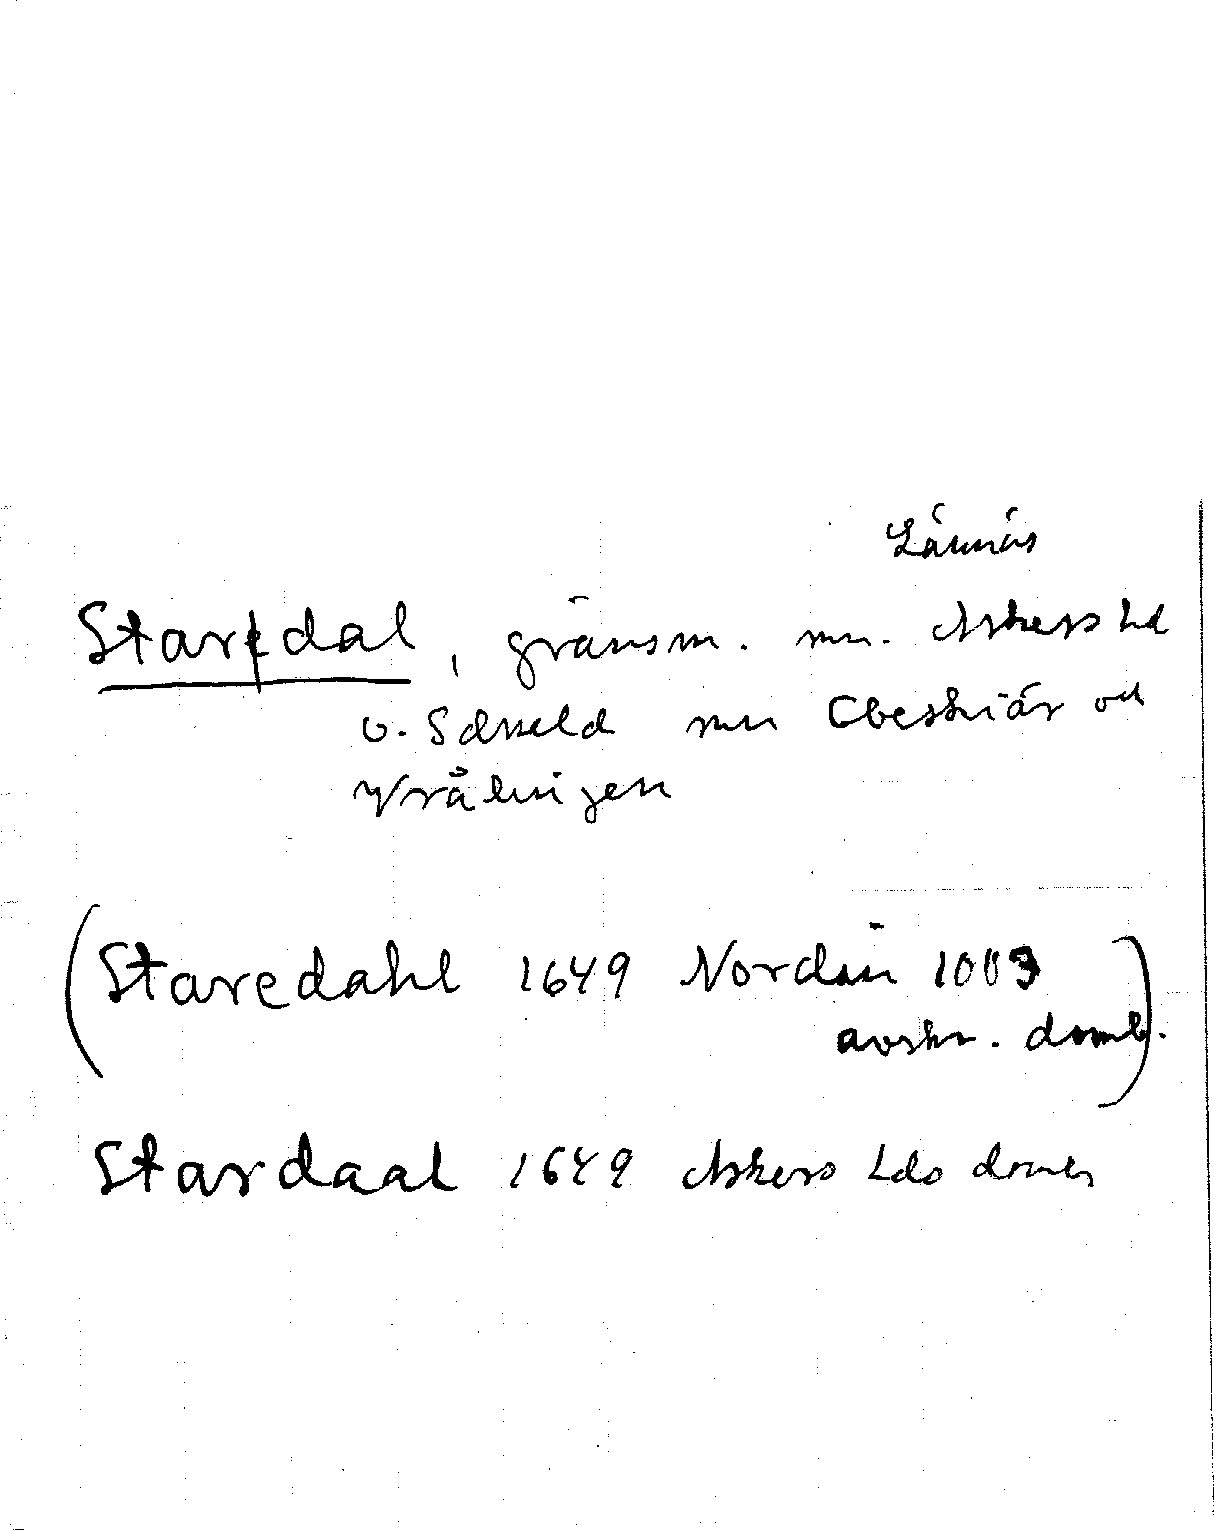 Lännäs
Stardal, gränsm. mn. Askers hd
o. Sdrmld mn Ebeskiär och
Vrålingen
(Staredahl 1649 Nordin 1003
avskr. domb.)
Stardaal 1649 Askers hds domb